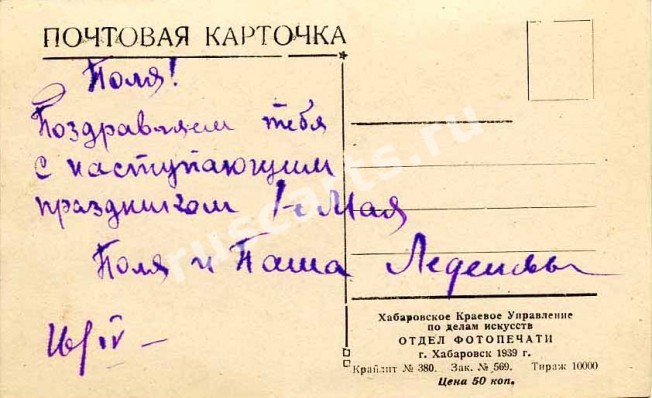 ПОЧТОВАЯ КАРТОЧКА
Поля!
Поздравляем тебя
с наступающим
праздником 1-Мая
Поля и Паша
Хабаровское Краевое Управление
по делам искусств
ОТДЕЛ ФОТОПЕЧАТИ
г. Хабаровск 1939 г.
Крайлит № 380. Зак. № 569. Тираж 10000
Цена 50 коп.
ruscarts.ru